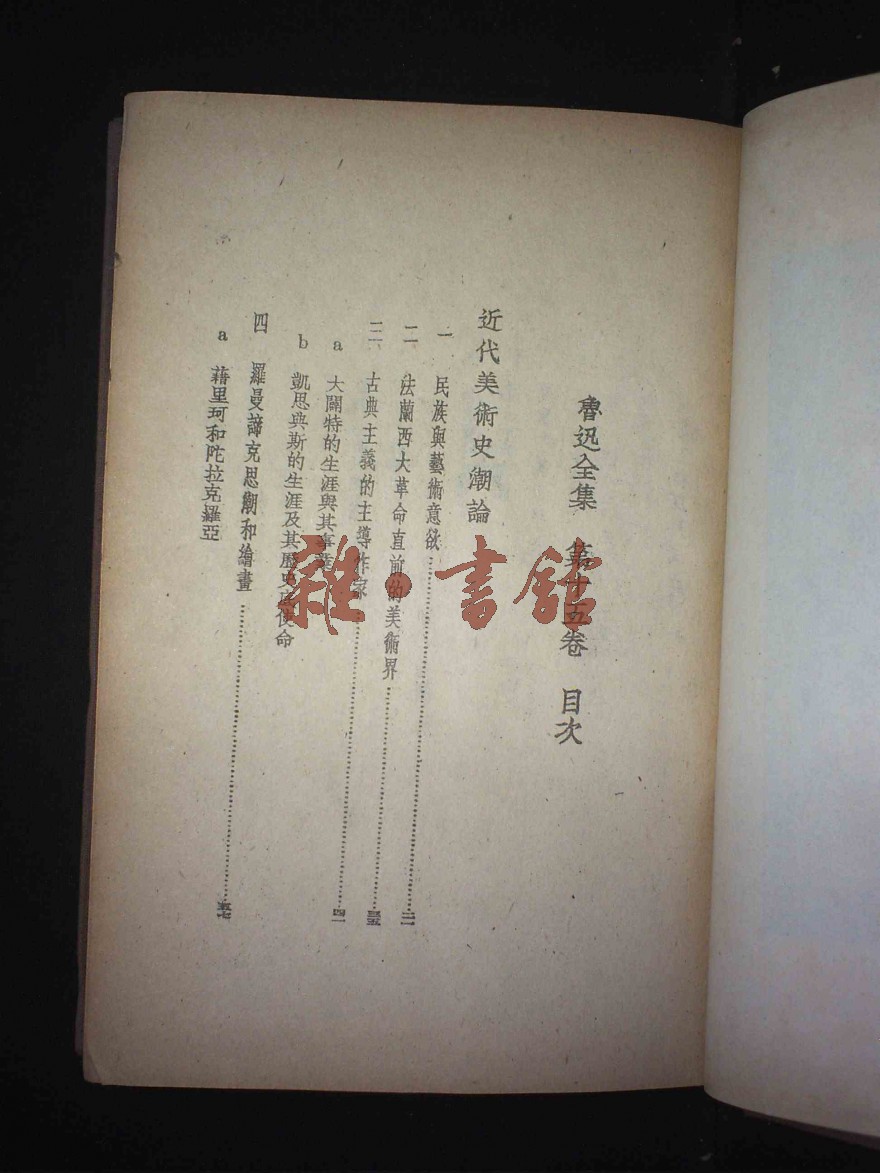 魯迅全集 第十五卷 目次
近代美術史潮論
一 民族與藝術意欲……
二 法蘭西大革命直前的美術界……
三 古典主義的主導作家……
a 大闢特的生涯與其事業
b 凱思典斯的生涯及其歷史底使命
四 羅曼諦克思潮和繪畫……五七
a 藉里珂和陀拉克羅亞
雜·書館